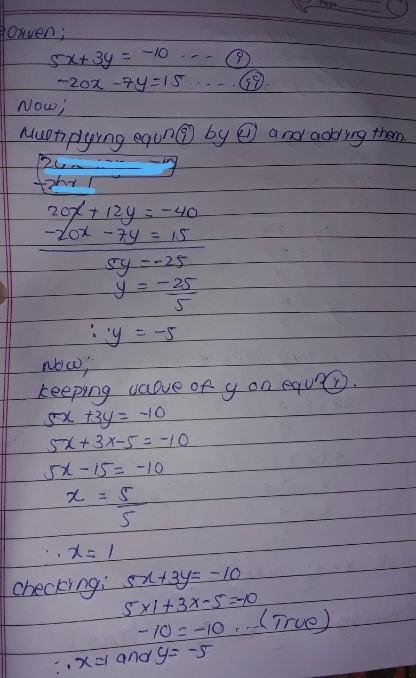 Given;
5x + 3y = -10 ---- (i)
-20x - 7y = 15 ..... (ii)
Now;
Multiplying equn (i) by (4) and adding them.
20x + 12y = -40
-20x - 7y = 15
5y = -25
y = -25/5
∴ y = -5
Now;
keeping value of y on equn (i).
5x + 3y = -10
5x + 3x-5 = -10
5x - 15 = -10
x = 5/5
∴ x = 1
checking; 5x + 3y = -10
5x1 + 3x-5 = -10
-10 = -10 .. (True)
∴ x=1 and y= -5